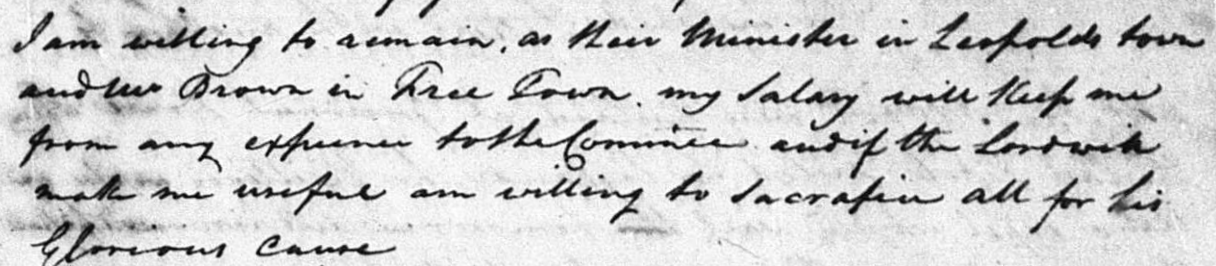 I am willing to remain, as their Minister in Leopolds town
and Mr Brown in Free Town. my Salary will Keep me
from any expence to the Committee and if the Lord will
make me useful am willing to Sacrafice all for his
Glorious cause